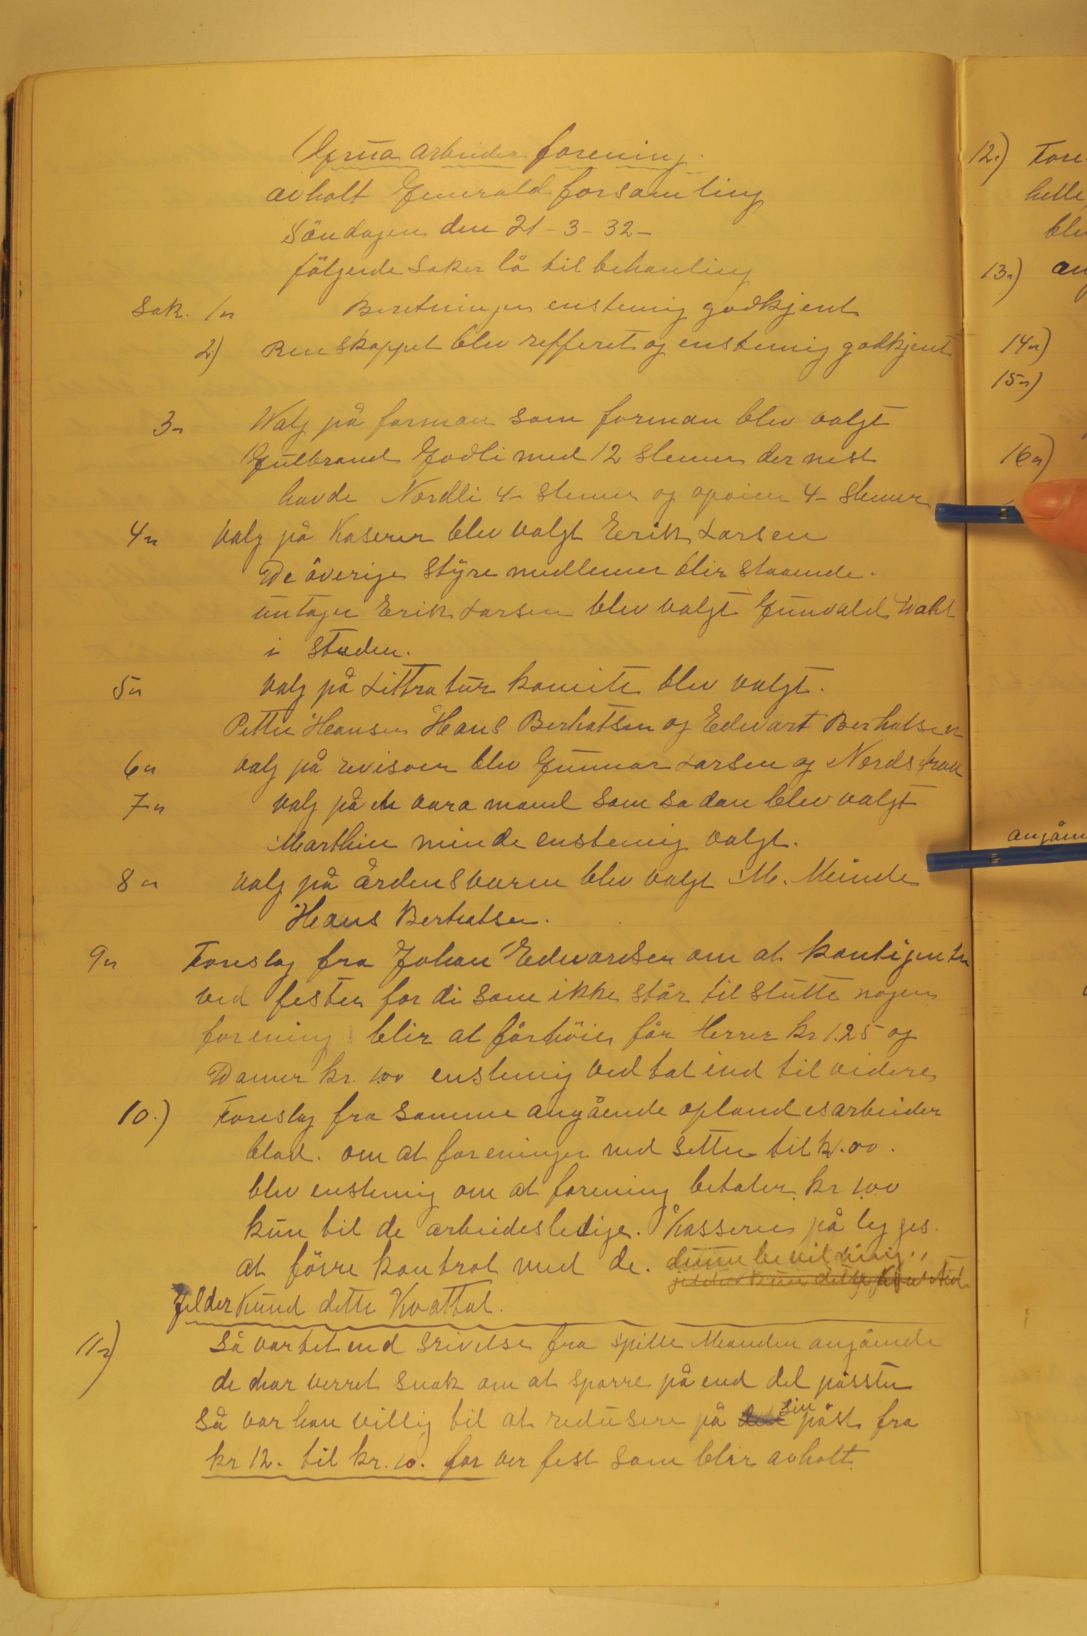 Grua arbeider forening.
avholt Generald forsamling
Söndagen den 21-3-32-
fölgende saker lå til behanling
Sak. 1n Beretningen enstemig godkjent
2) Renskappet blev refferet og enstemig godkjent
3n Valg på forman som forman blev valgt
Gulbrand Godli med 12 stemer der nest
havde Nordli 4 stemer og 4 stemer
4n Valg på Kaserer blev valgt Erik Larsen
De överige styre medlemer blir staaende.
untagen Erik Larsen blev valgt Gunvald Dahl
i steden.
5n Valg på Littratur komite blev valgt.
Petter Hansen Hans Berhatsen og Edvart Berhatsen
6n Valg på revisorer blev Gunnar Larsen og Nordstran
7n Valg på en vara mand som sadan blev valgt
Marthin minde enstemig valgt.
8n Valg på årdensvaren blev valgt M. Minde
Hans Berhatsen.
9n Foreslag fra Johan Edvardsen om at kontigenten
ved fester for di som ikke står til slutte nogen
forening blir at forhöies for Herrer kr 1.25 og
Damer kr. 1.00 enstemig vedtat ind til videre
10.) Foreslag fra samme angående oplandesarbeider
blad. om at foreningen ned setter til k.00.
blev enstemig om at forening betaler kr 1.00
kun til de arbeidesledige. Kasseren på legges.
at föire kontrol med de. denne bevilning
gjelder kund dette Kvattal.
11n) Så var det end srivelse fra spille Manden angående
de har verret snak om at sparre på end del påsster
så var han villig til at redusere på sin påst fra
kr 12. til kr. 10. for ver fest som blir avholt.
12.) Fore
helle
blev
13n) an
14n)
15n)
16n)
angåen